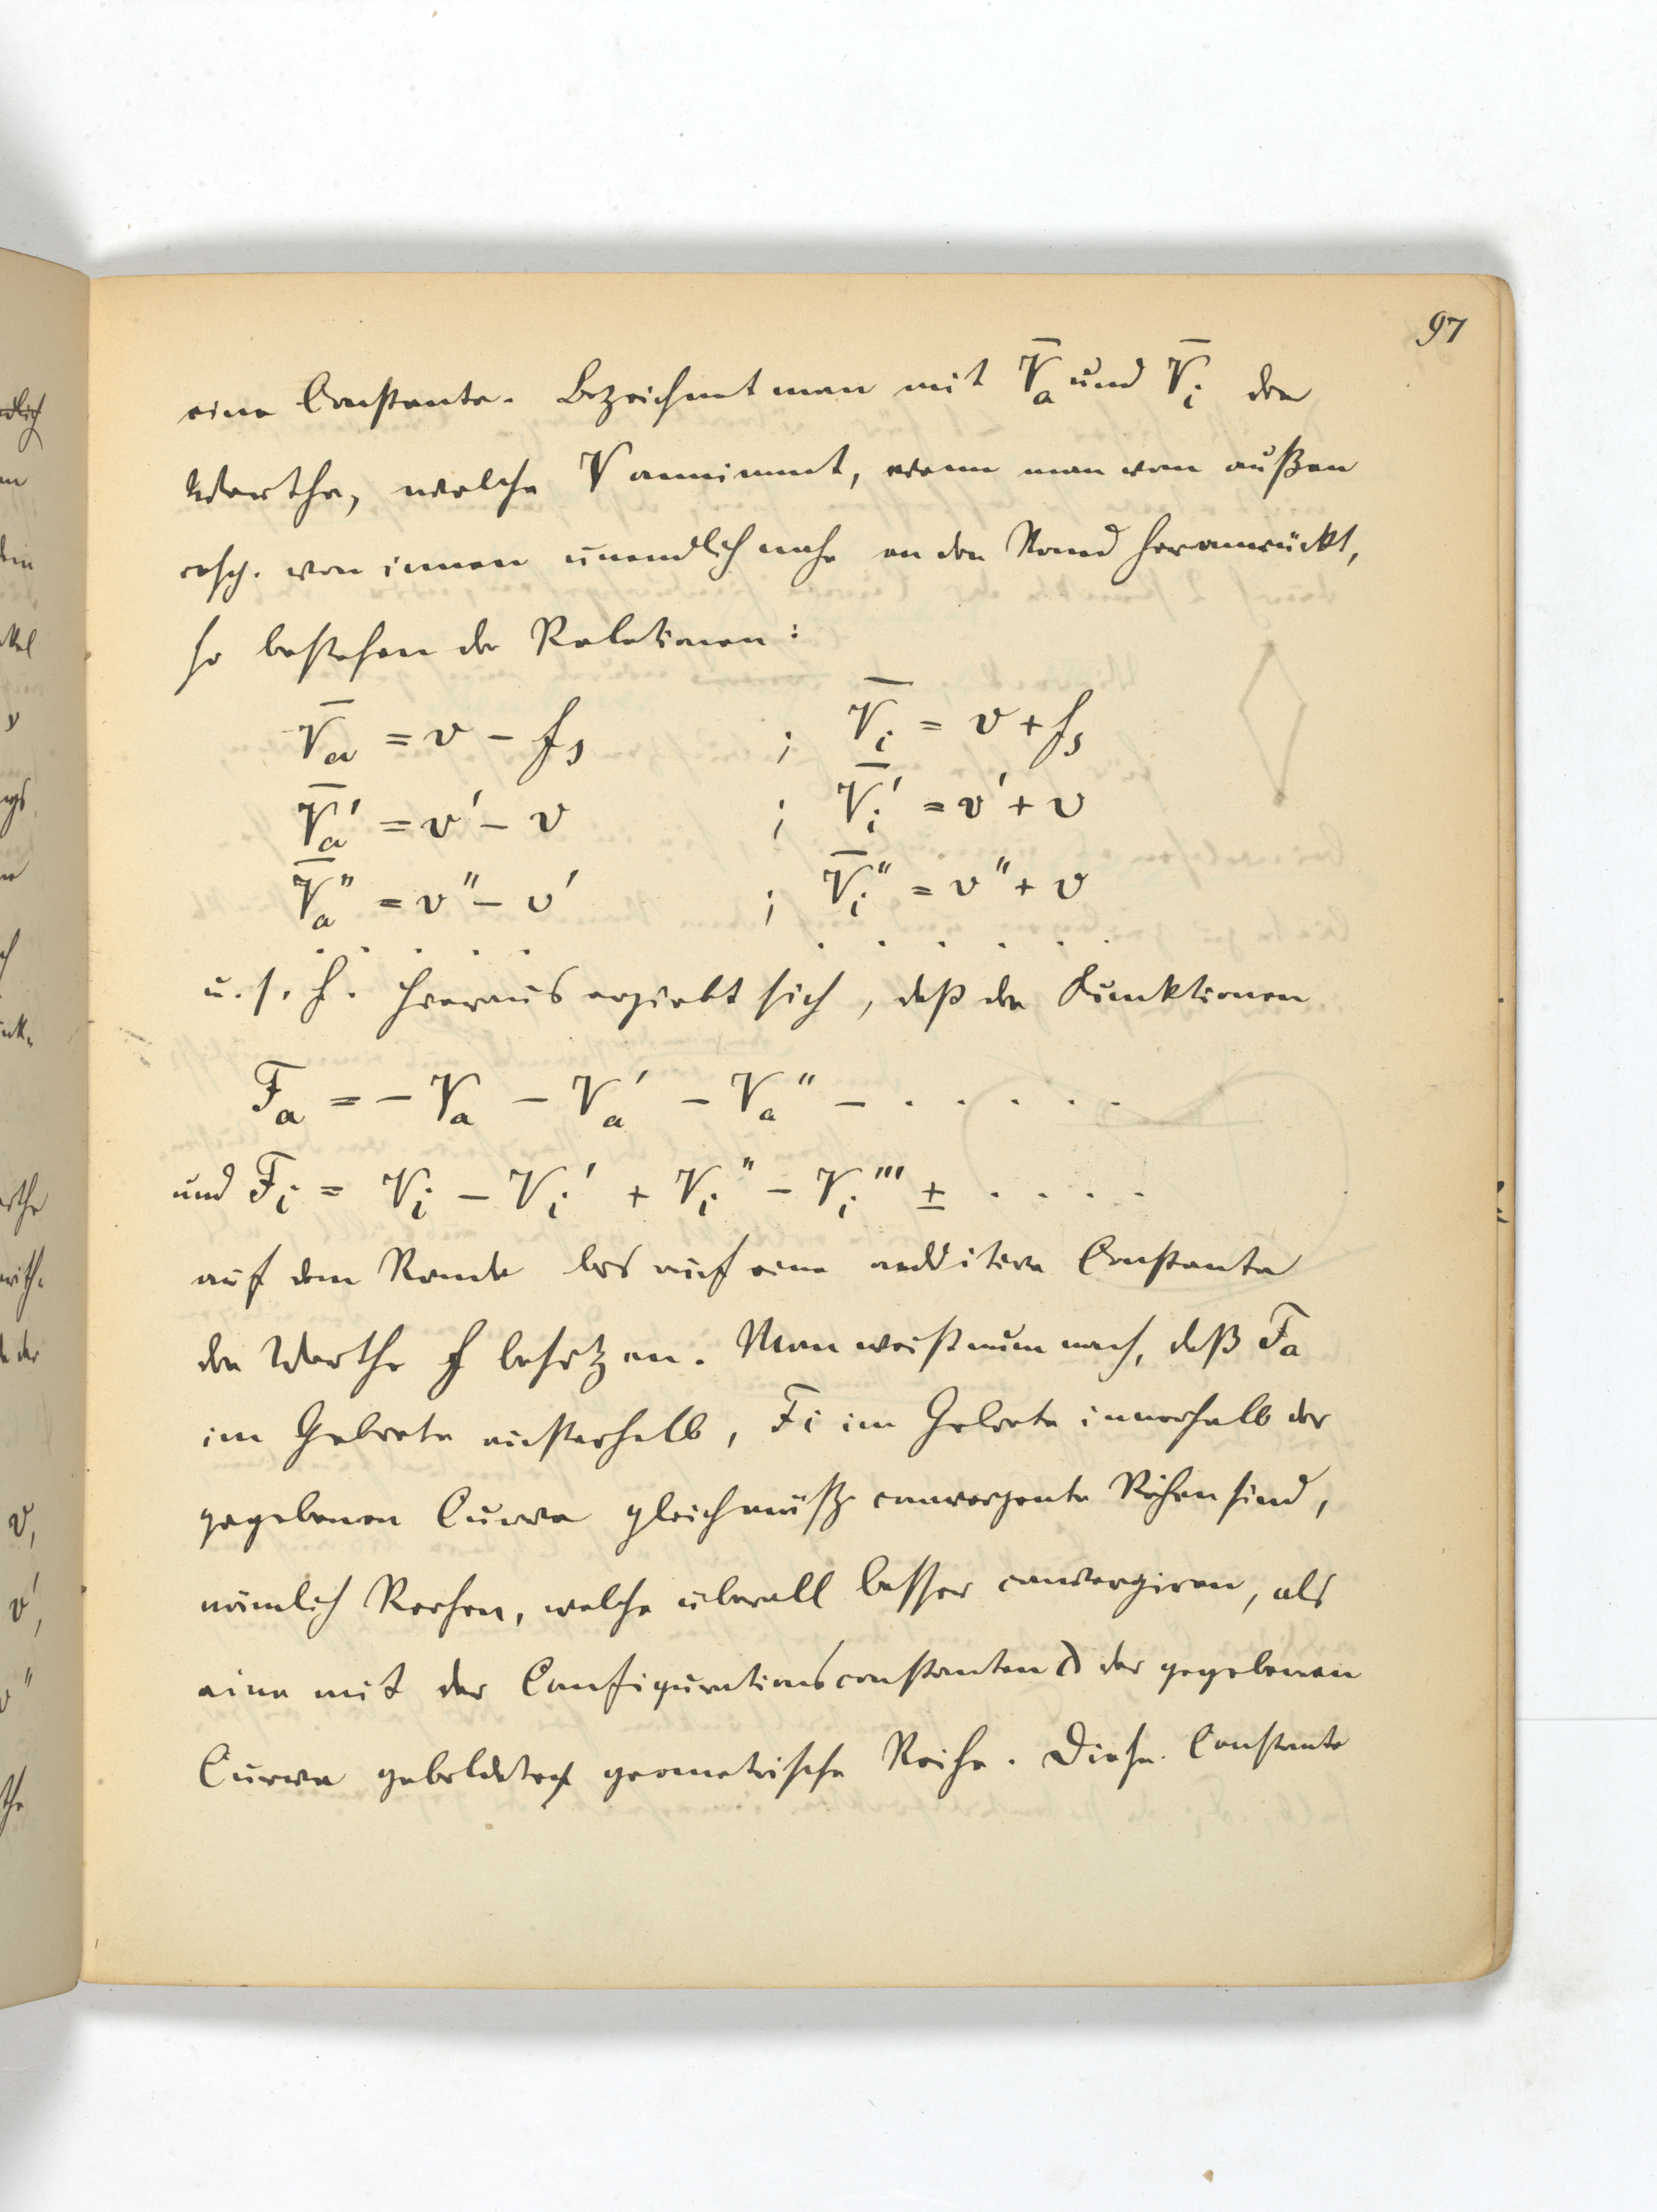 97
eine Constante. Bezeichnet man mit V̅a und V̅i die
Werthe, welche V annimmt, wenn man von außen
resp. von innen unendlich nahe an den Rand heranrückt,
so bestehen die Relationen:
V̅a = v − fs ; V̅i = v + fs
V̅a′ = v′ − v ; V̅i′ = v′ + v
V̅a″ = v″ − v′ ; V̅i″ = v″ + v
. . . . . . . . . . .
u. s. f. Hieraus ergiebt sich, daß die Funktionen
Fa = − Va − Va′ − Va″ − . . . . .
und Fi = Vi − Vi′ + Vi″ − Vi‴ ± . . . .
auf dem Rande bis auf eine additive Constante
die Werthe f besitzen. Man weist nun nach, daß Fa
im Gebiete außerhalb, Fi im Gebiete innerhalb der
gegebenen Curve gleichmäß. convergente Reihen sind,
nämlich Reihen, welche überall besser convergiren, als
eine mit der Configurationsconstanten λ der gegebenen
Curve gebildete geometrische Reihe. Diese Constante